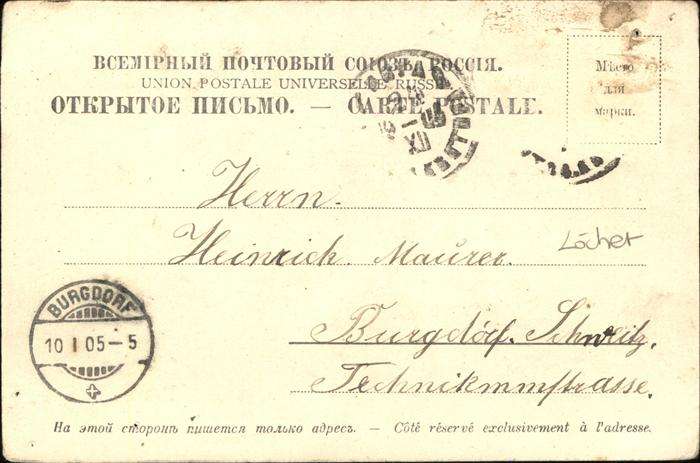 ВСЕМІРНЫЙ ПОЧТОВЫЙ СОЮЗЪ РОССІЯ.
UNION POSTALE UNIVERSELLE RUSSIE
ОТКРЫТОЕ ПИСЬМО. — CARTE POSTALE.
Мѣсто
для
марки.
Herrn.
Heinrich Maurer.
Löcher
BURGDORF
10 I 05-5
Burgdorf. Schweitz.
Technikummstrasse.
На этой сторонѣ пишется только адресъ. — Côté réservé exclusivement à l'adresse.